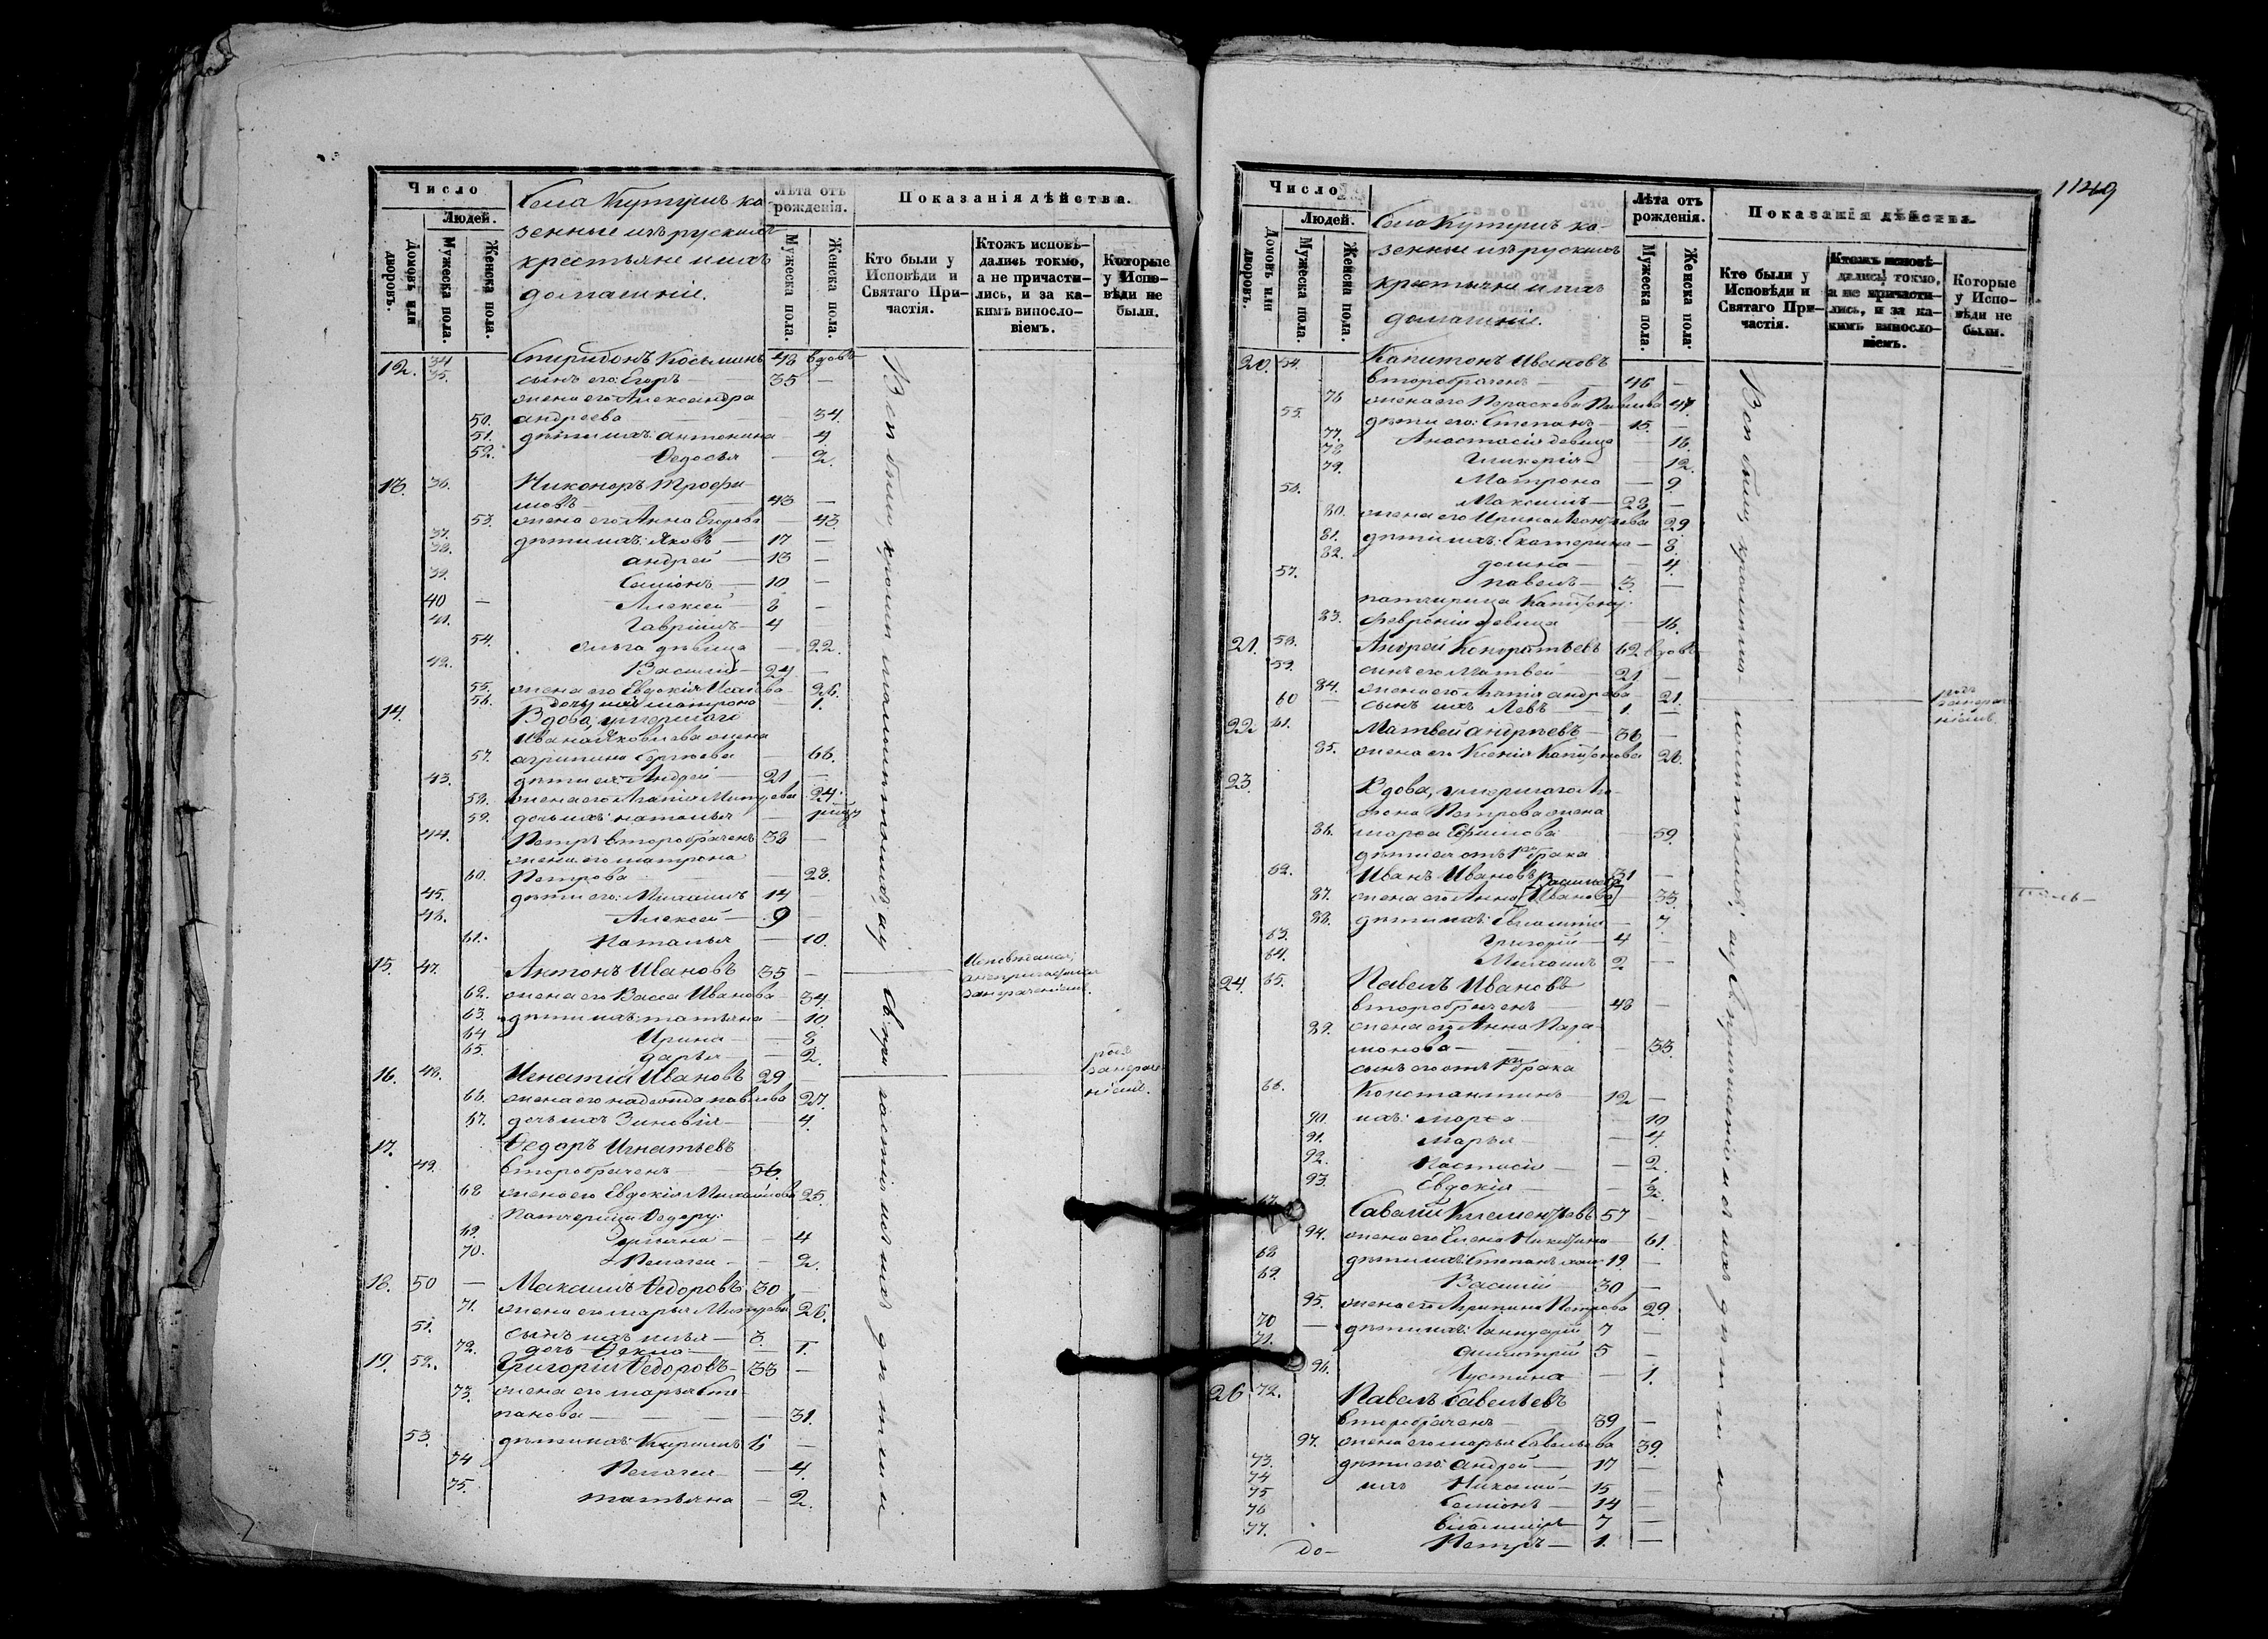 Число
Людей.
Домовъ или дворовъ.
Мужеска пола.
Женска пола.
Села Кутушъ ка
зенные изъ рускихъ
крестьяне и ихъ
домашніе.
Лѣта отъ рожденія.
Мужеска пола.
Женска пола.
Показанія дѣйства.
Кто были у Исповѣди и Святаго Причастія.
Ктожъ исповѣдались токмо, а не причастились, и за какимъ винословіемъ.
Которые у Исповѣди не были.
12. 34 Спиридонъ Косьминъ 48 вдовъ
35. сынъ его: Егоръ 35 —
жена его Александра
50. андреева — 34.
51. дѣти ихъ: антонина — 4.
52. Федосья — 2.
13. 36. Никоноръ Трофи
мовъ — 43 —
53. жена его Анна Егорова — 43
37. дѣти ихъ: Яковъ — 17 —
38. андрей — 13 —
39. Семіонъ — 10 —
40 — Алексей — 8 —
41. Гавріилъ — 4
54. Ольга дѣвица — 22.
42. Василій — 24 —
55. жена его Евдокія Исаева — 26.
56. дочь ихъ матрона — 1.
14. Вдова, умершаго
Ивана Яковлева жена
57. агрипина Сергѣева — 66.
43. дѣти ея: Андрей — 21 —
58. жена его Агапія Митрева 24.
59. дочь ихъ: наталья —
44. Петръ второбраченъ 38 —
жена его матрона
60. Петрова — 28.
45. дѣти его: Михаилъ 14
46. Алексей — 9 —
61. Наталья — 10.
15. 47. Антонъ Ивановъ 35 —
62. жена его Васса Иванова — 34.
63. дѣти ихъ: татьяна — 10.
64 Ирина — 8
65. дарья — 2.
16. 48. Игнатій Ивановъ 29 —
66. жена его надежда павлова 27.
67. дочь ихъ Зиновія — 4.
17. Федоръ Игнатьевъ
49. второбраченъ — 56.
68 жена его Евдокія Михайлова 25.
Патчерицы Федору:
69. ульяна — 4
70. Пелагея — 2.
18. 50 — Максимъ Федоровъ 30 —
71. жена его марья Митрева 26.
51. сынъ ихъ илья — 3. —
72. дочь Фекла — 1.
19. 52. Григорій Федоровъ — 33 —
73. жена его марья Сте
панова — 31.
53. дѣти ихъ: Кирилъ 6 —
74 Пелагея — 4.
75. татьяна — 2.
Всѣ были, кромѣ
Св. при частія
дѣтми
1149
Число
Людей.
Домовъ или дворовъ.
Мужеска пола.
Женска пола.
Села Кутушъ ка-
зенные изъ рускихъ
крестьяне и ихъ
домашніе.
Лѣта отъ рожденія.
Мужеска пола.
Женска пола.
Показанія дѣйства.
Кто были у Исповѣди и Святаго Причастія.
Ктожъ исповѣдались токмо, а не причастились, и за какимъ винословіемъ.
Которые у Исповѣди не были.
20. 54. Капитонъ Ивановъ
второбраченъ — 46 —
76 жена его Параскева Павлова 47.
55. дѣти его: Степанъ — 15. —
77. Анастасія девица — 18.
78 Гликерія — 12.
79. Матрона — 9.
56. Максимъ — 28 —
80. жена его Ирина Леонтьева 29.
81. дѣти ихъ: Екатерина — 8
82. домна — 4.
57. павелъ — 3. —
патчерица Капитону:
83. февронія девица — 16.
21. 58. Андрей Кондратьевъ 62 вдовъ
59. сынъ его Матвей — 21 —
84. жена его Агапія андрева — 21.
60 — сынъ ихъ Левъ — 1. —
22 61. Матвей андрѣевъ — 36 —
85. жена его Ксенія Капитонова 28.
23. Вдова, умершаго
Петрова жена
86. марфа Ефимова — 59.
дѣти ея отъ 1го брака
62. Иванъ Ивановъ 31 —
Васильева
87. жена его Анна [Иванова] — 33.
88. дѣти ихъ: — 7
63. Григорій — 4 —
64. Михаилъ 2 —
24. 65. Павелъ Ивановъ
второбраченъ — 48 —
89. жена его Анна Пара-
монова — 33.
сынъ его отъ 1го брака
66. Константинъ — 12 —
90. ихъ: марфа — 10
91. марья — 4.
92. Настасія — 2.
93. Евдокія —
67. Савелій Клементьевъ 57 —
94. жена его Елена Никитина — 61.
68 дѣти ихъ: Степанъ хол: 19. —
69. Василій — 30 —
95. жена его Агрипина Петрова 29.
70 — дѣти ихъ: 7 —
71. димитрій 5 —
96. Густина — 1.
26 72. Павелъ Савельевъ
второбраченъ — 39 —
97. жена его марья Савельева 39.
73. дѣти его: андрей — 17 —
74 ихъ Николай — 15 —
75 Семіонъ — 14 —
76 7 —
77. Петръ — 1. —
до —
Всѣ были, кромѣ
дѣтми